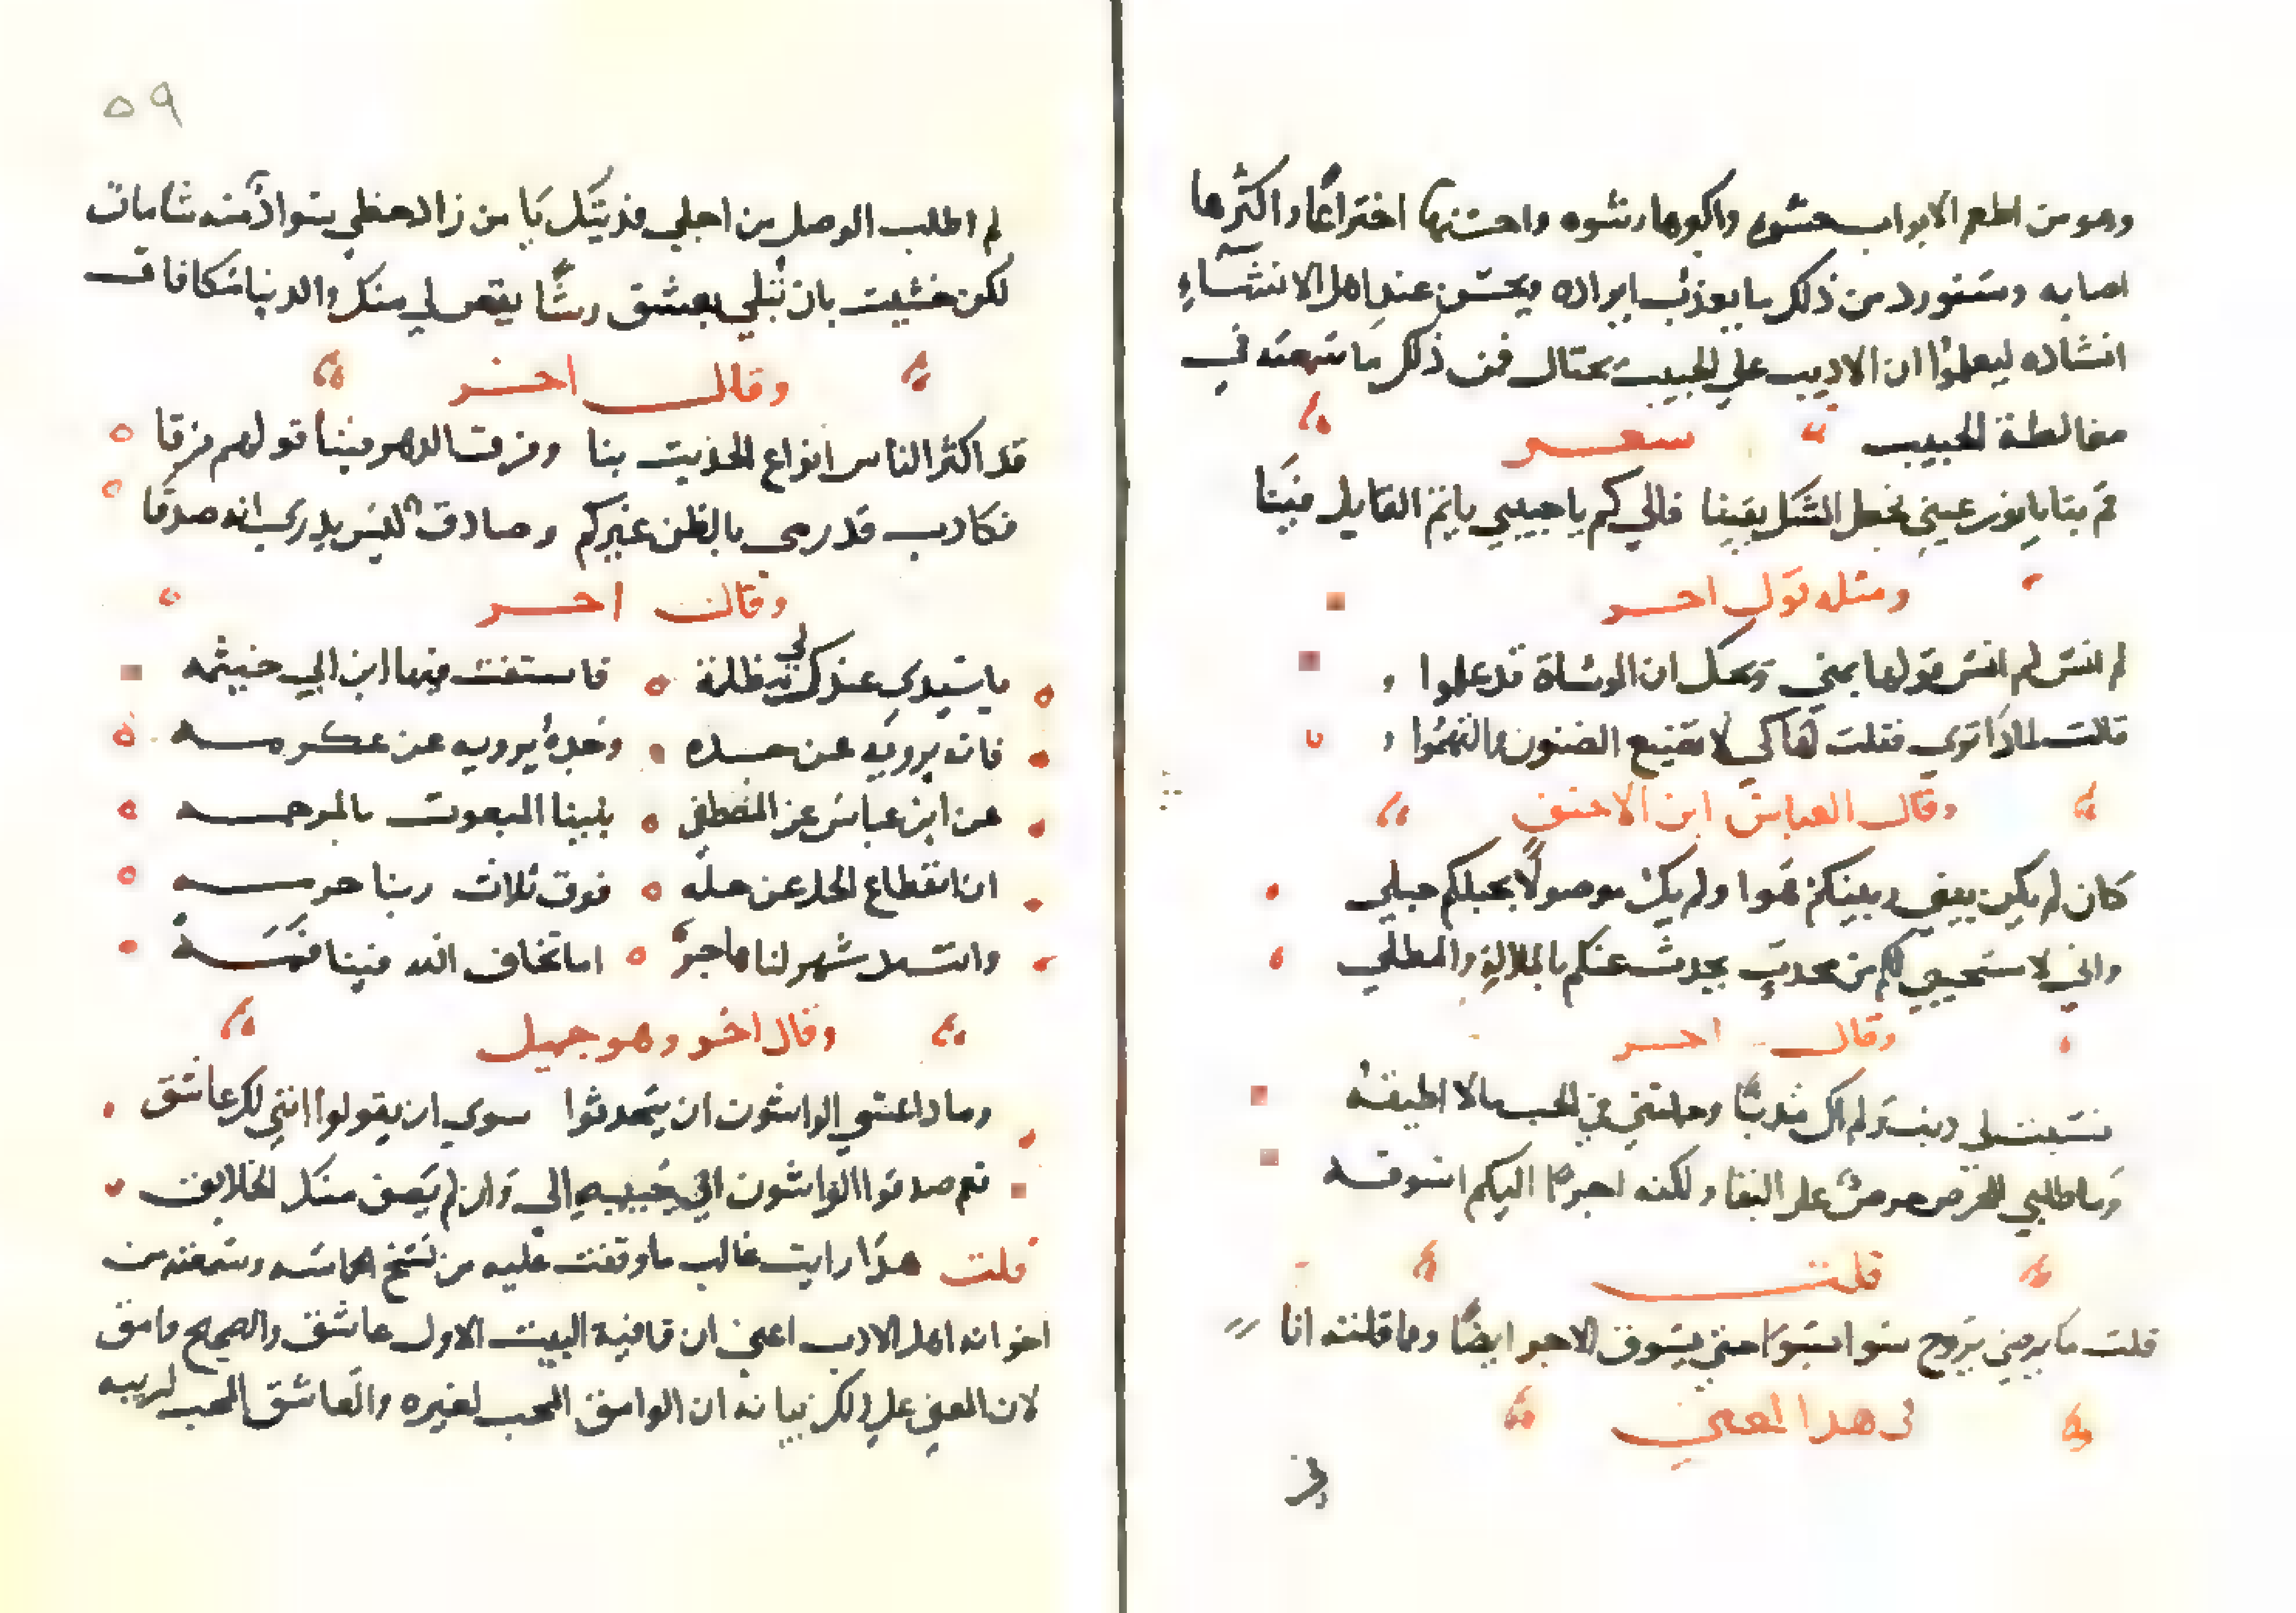 وهو من اطعم الابواب حشوه واكبرها رشوه واحسنها اختراعًا واكثرها
اصابه وسنورد من ذلك ما يعذب ايراده ويحسن عند اهل الانشاء
انشاده ليعلموا ان الاديب علي الحبيب يحتال فمن ذلك ما سمعته في
مغالطة الحبيب شعر
قم بنا يا نور عيني نجعل الشك يقينا فالي كم يا حبيبي ياثم القايل فينا
ومثله قول اخر
لم انس لم انس قولها بمني ويحك ان الوشاة قد علموا
قالت لماذا تري فقلت لها كي لا تضيع الضنون والتهم
وقال العباس ابن الاحنف
كان لم يكن بيني وبينكم هوا ولم يك موصولا بحبلكم حبلي
واني لاستحيي لكم من محدث يحدث عنكم بالملالة والمطلي
وقال اخر
ولم اك مذنبًا وحملتني في الحب ما لا اطيقه
وما طلبي للقرض حرص علي البقا ولكنه اجر اليكم اسوقه
قلت
قلت ما يرضي يروح سوا سوا حتي يسوق الاجر ايضًا ومما قلته انا
في هدا المعني
٥٩
لم اطلب الوصل من اجلي فديتك يا من زاد حظي بتواد منه شامات
لكن خشيت بان تبلي بعشق رشًا يقتص لي منك والدنيا مكافات
وقال اخر
قد اكثر الناس انواع الحديت بنا وفرقت الدهر فينا قولهم فرقا
فكادب قد رمي بالظن غيركم وصادق ليس يدري انه صدقا
وقال اخر
يا سيدي عندك لي مظلمة فاستفت فيها ابن ابي خيثمه
فانه يرويه عن جده وجده يرويه عن عكرمه
عن ابن عباس عن المصطفي نبينا المبعوت بالمرحمه
ان انقطاع الخل عن خله فوق ثلاث ربنا حرمه
وانت مد شهر لنا هاجر اما تخاف الله فينا فمه
وقال اخر وهو جميل
وماداعسي الواشون ان يتحدثوا سوي ان يقولوا انني لك عاشق
نعم صدقوا الواشون انتي حبيبه الي وان لم تصف منك الخلايق
قلت هدا رايت غالب ما وقفت عليه من نسخ الحماسه وسمعته من
اخوانه اهل الادب اعني ان قافية البيت الاول عاشق والصحيح وامق
لان المعني علي ذلك بيانه ان الوامق المحب لغيره والعاشق المحب لريبه